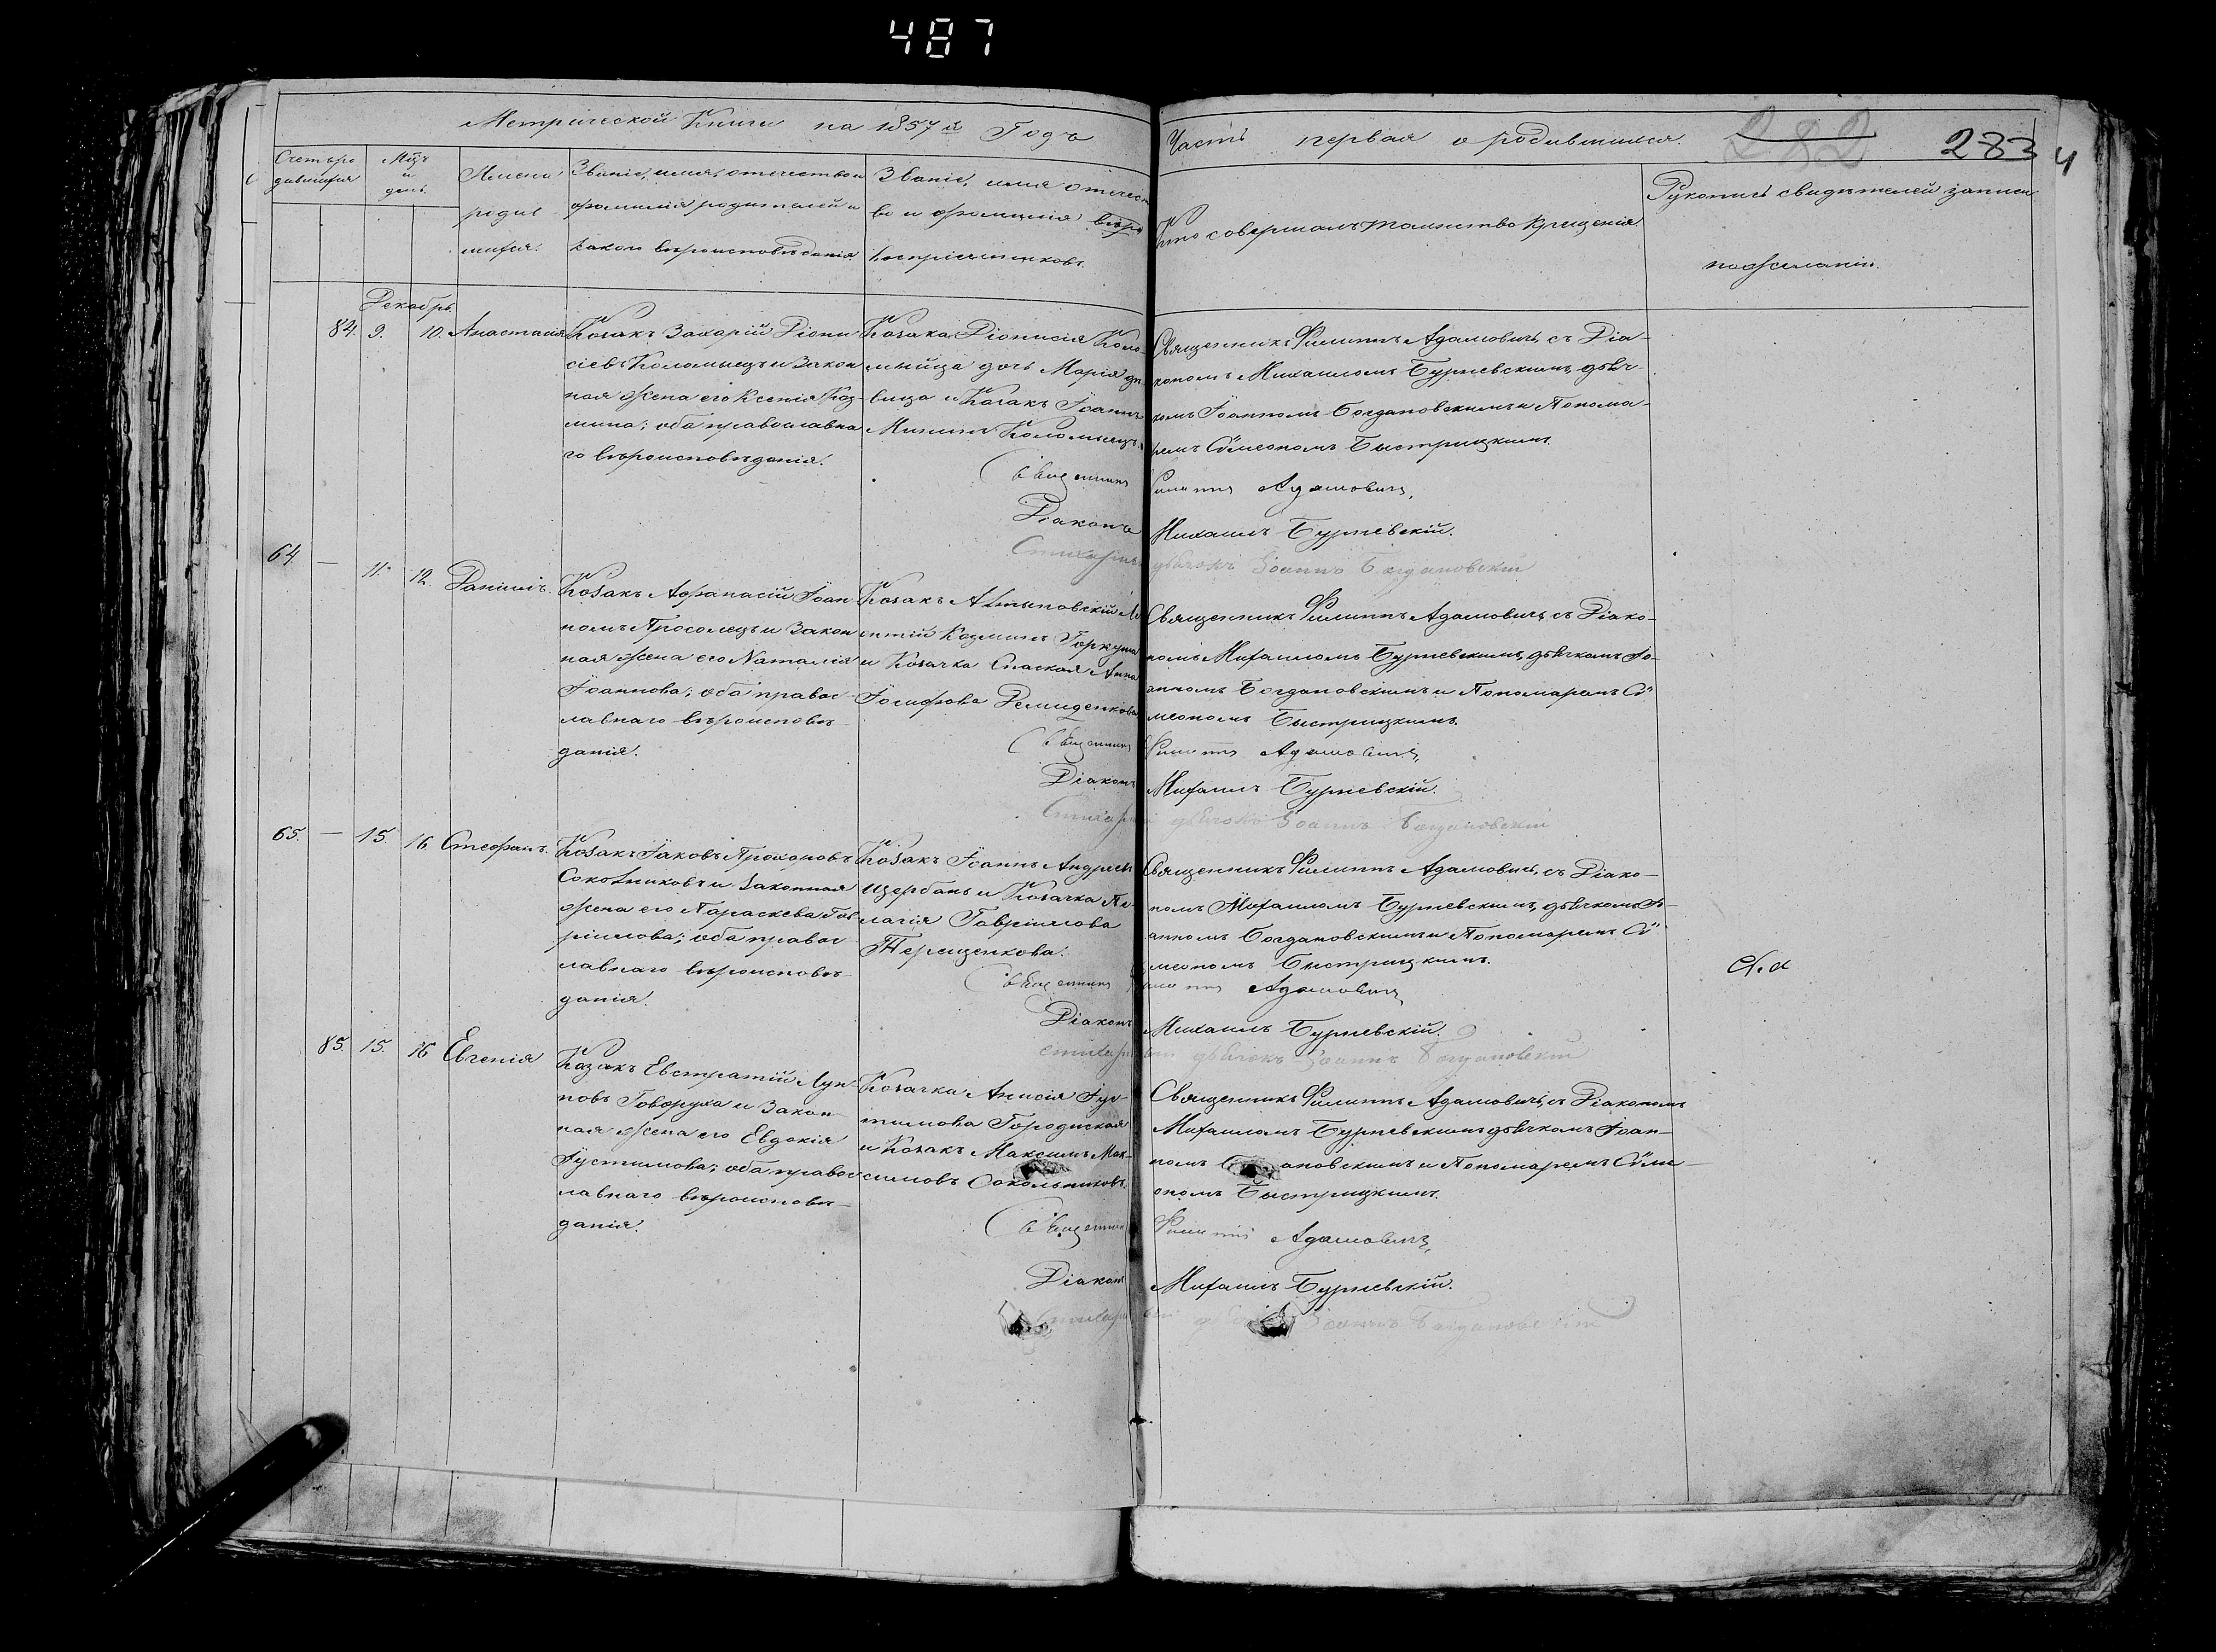 487
Метрической Книги на 1857й Годъ
Часть первая о родившихся.
282
283
Счетъ ро
дившихся
Мцъ
и
день.
Имена
родив
шихся.
Званіе, имя, отечество и
фамилія родителей и
какого вѣроисповѣданія.
Званіе, имя отечест
во и фамилія
воспріемниковъ.
Кто совершалъ таинство крещенія.
Рукописъ свидѣтелей записи
по желанію.
Декабрь.
84. 9. 10. Анастасія
Козакъ Захарій Діони
сіевъ Коломыецъ и закон
ная жена его Ксенія Коз
мина; оба православна
го вѣроисповѣданія.
Козака Діонисія Коло
мыйца дочь Марія дѣ
вица и Козакъ Іоаннъ
Мининъ Коломыецъ.
Священникъ Филиппъ Адамовичъ, съ Діа-
кономъ Михаиломъ Бурневскимъ, дьяч-
комъ Іоанномъ Богдановскимъ и Понома-
ремъ Сѵмеономъ Быстрицкимъ.
Священникъ Филиппъ Адамовичъ,
Діаконъ Михаилъ Бурневскій.
Стихарный дьячокъ Іоаннъ Богдановскій
64. — 11. 12. Даніилъ.
Козакъ Афанасій Іоан
новъ Просолецъ и закон
ная жена его Наталія
Іоаннова; оба правос-
лавнаго вѣроисповѣ-
данія.
Козакъ Алтыновскій
Козминъ Горкуша
и Козачка Спаская Анна
Іосифова Демиденкова
Священникъ Филиппъ Адамовичъ, съ Діако-
номъ Михаиломъ Бурневскимъ, дьячкомъ Іо-
анномъ Богдановскимъ и Пономаремъ Сѵ
меономъ Быстрицкимъ.
Священникъ Филиппъ Адамовичъ,
Діаконъ Михаилъ Бурневскій.
Стихарный дьячокъ Іоаннъ Богдановскій
65. — 15. 16. Стефанъ.
Козакъ Іаковъ Прохоровъ
Сокольниковъ и законная
жена его Параскева Гав
ріилова; оба правос-
лавнаго вѣроисповѣ-
данія.
Козакъ Іоаннъ Андреевъ
Щербань и Козачка Пе-
лагія Гавріилова
Терещенкова.
Священникъ Филиппъ Адамовичъ, съ Діако-
номъ Михаиломъ Бурневскимъ, дьячкомъ Іо-
анномъ Богдановскимъ и Пономаремъ Сѵ
меономъ Быстрицкимъ.
Священникъ Филиппъ Адамовичъ
Діаконъ Михаилъ Бурневскій.
Стихарный дьячокъ Іоаннъ Богдановскій
85. 15. 16 Евгенія
Козакъ Евстратій Луп-
повъ Говоруха и закон-
ная жена его Евдокія
Іустимова; оба правос
лавнаго вѣроисповѣ-
данія.
Козачка Анисія Іус-
тимова Городиская
и Козакъ Максимъ Мак-
симовъ Сокольниковъ.
Священникъ Филиппъ Адамовичъ, съ Діакономъ
Михаиломъ Бурневскимъ дьячкомъ Іоан-
номъ Богдановскимъ и Пономаремъ Сѵме-
ономъ Быстрицкимъ.
Священникъ Филиппъ Адамовичъ,
Діаконъ Михаилъ Бурневскій.
Стихарный дьячокъ Іоаннъ Богдановскій